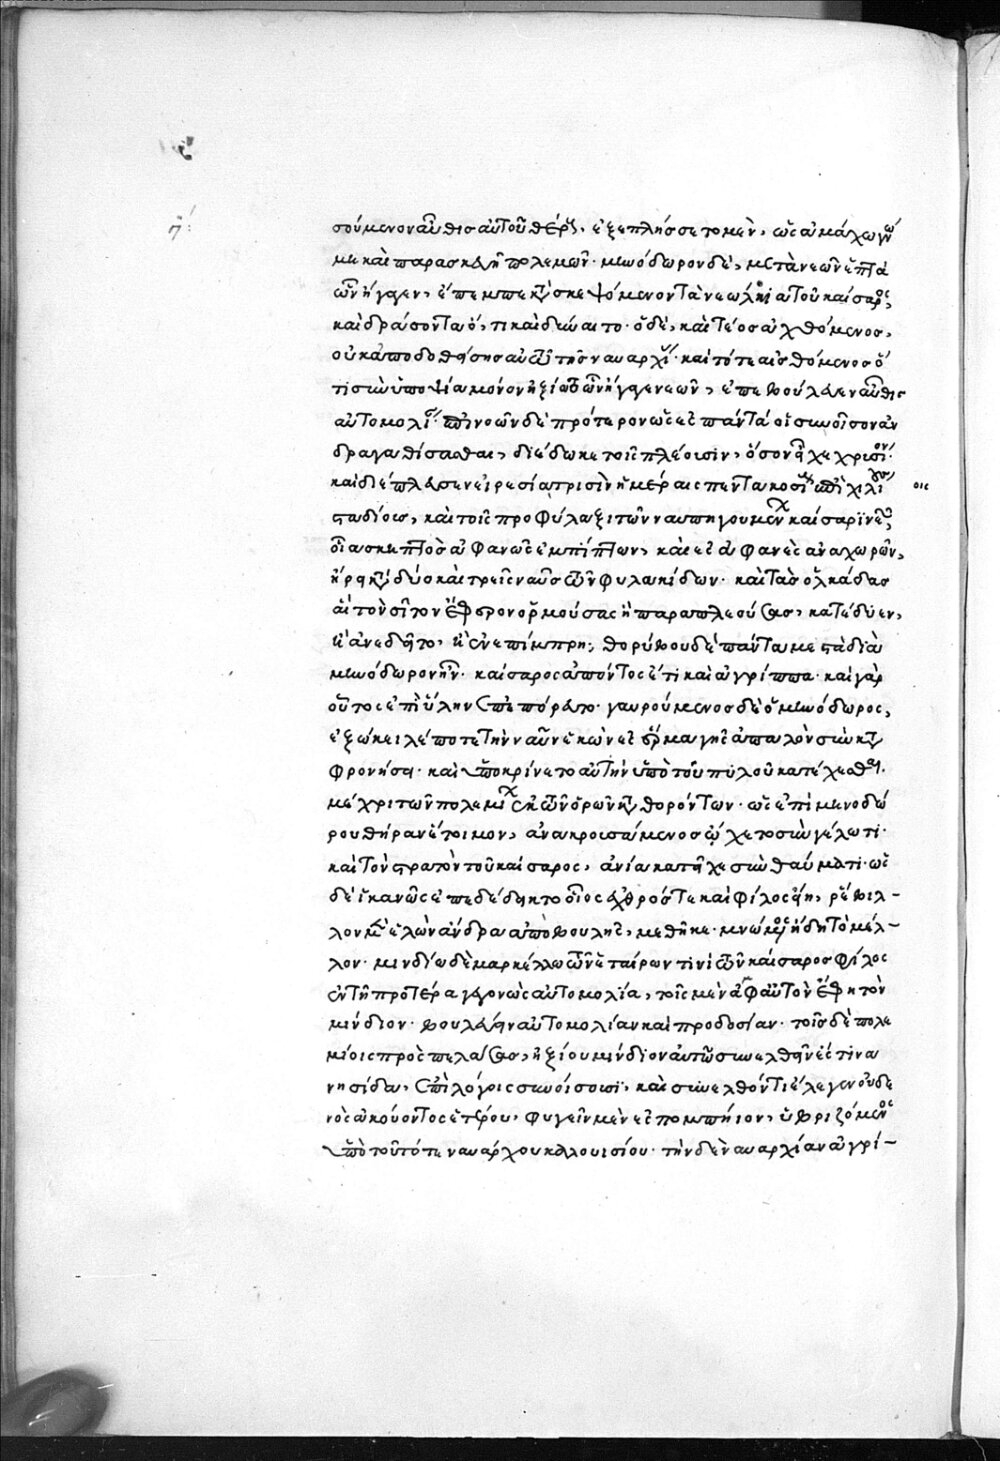 σούμενον αὖθις αὐτοῦ θέρους, ἐξεπλήσσετο μὲν, ὡς ἀμάχων
με καὶ παρασκευῇ πολέμων· μηνόδωρον δὲ, μετὰ νεῶν ἑπτὰ
ὧν ἦγεν, ἔπεμπε κατασκεψόμενον τὰ νεώλκια τοῦ καίσαρος,
καὶ δράσοντα ὅ, τι καὶ δύναιτο· ὁ δὲ, καὶ τέως ἀχθόμενος,
οὐκ ἀποδοθείσης αὐτῷ τῆς ναυαρχίας· καὶ τότε αἰσθόμενος ὅ
τι σὺν ὑποψία μόνον ἠξιοῦτο ὧν ἦγε νεῶν, ἐπεβούλευεν αὖθις
αὐτομολίαν· ἐπινοῶν δὲ πρότερον ὡς ἐς πάντά οἱ συνοῖσον ἀν
δραγαθίσασθαι, διέδωκε τοῖς πλέουσιν, ὅσον εἶχε χρυσίον·
καὶ διέπλευσεν εἰρεσία τρισὶν ἡμέραις πεντακοσίους ἐπὶ χιλί οις
σταδίους, καὶ τοῖς προφύλαξι τῶν ναυπηγουμένων καίσαρι νεῶν
οἷα σκηπτὸς ἀφανῶς ἐμπίπτων, καὶ ἐς ἀφανὲς ἀναχωρῶν,
ᾕρει κατὰ δύο καὶ τρεῖς ναῦς τῶν φυλακίδων· καὶ τὰς ὁλκάδας
αἳ τὸν σῖτον ἔφερον ὁρμούσας ἢ παραπλεούσας, κατέδυεν,
ἢ ἀνεδεῖτο, ἢ ἐνεπίμπρη, θορύβου δὲ πάντα μεστὰ διὰ
μηνόδωρον ἦν· καίσαρος ἀπόντος ἔτι καὶ ἀγρίππα· καὶ γὰρ
οὗτος ἐπὶ ὕλην ἐπεπόρευτο· γαυρούμενος δὲ ὁ μηνόδωρος,
ἐξώκειλέ ποτε τὴν ναῦν ἑκὼν ἐς ἕρμα γῆς ἁπαλὸν σὺν κατα
φρονήσει· καὶ ὑπεκρίνετο αὐτὴν ὑπὸ τοῦ πηλοῦ κατέχεσθαι·
μέχρι τῶν πολεμίων ἐκ τῶν ὀρῶν καταθορόντων· ὡς ἐπὶ μηνοδώ
ρου θήραν ἕτοιμον, ἀνακρουσάμενος ᾤχετο σὺν γέλωτι·
καὶ τὸν στρατὸν τοῦ καίσαρος, ἀνία κατεῖχε σὺν θαύματι· ὡς
δὲ ἱκανῶς ἐπεδέδεικτο οἷος ἐχθρός τε καὶ φίλος εἴη, ῥέβιλ-
λον μὲν ἑλὼν ἄνδρα ἀπὸ βουλῆς, μεθῆκε· μνώμενος ἤδη τὸ μέλ-
λον· μινδίω δὲ μαρκέλλω τῶν ἑταίρων τινὶ τῶν καίσαρος φίλος
ἐν τῇ προτέρα γεγονὼς αὐτομολία, τοῖς μὲν ἀμφ αὐτὸν ἔφη τὸν
μίνδιον· βουλεύειν αὐτομολίαν καὶ προδοσίαν· τοῖς δὲ πολε
μίοις προσπελάσας, ἠξίου μίνδιον αὐτῷ συνελθεῖν ἔς τινα
νησίδα, ἐπὶ λόγοις συνοίσουσι· καὶ συνελθόντι ἔλεγεν οὐδε
νὸς ἀκούοντος ἑτέρου, φυγεῖν μὲν ἐς πομπήιον, ὑβριζόμενος
ὑπὸ τοῦ τότε ναυάρχου καλουισίου· τὴν δὲ ναυαρχίαν ἀγρί-